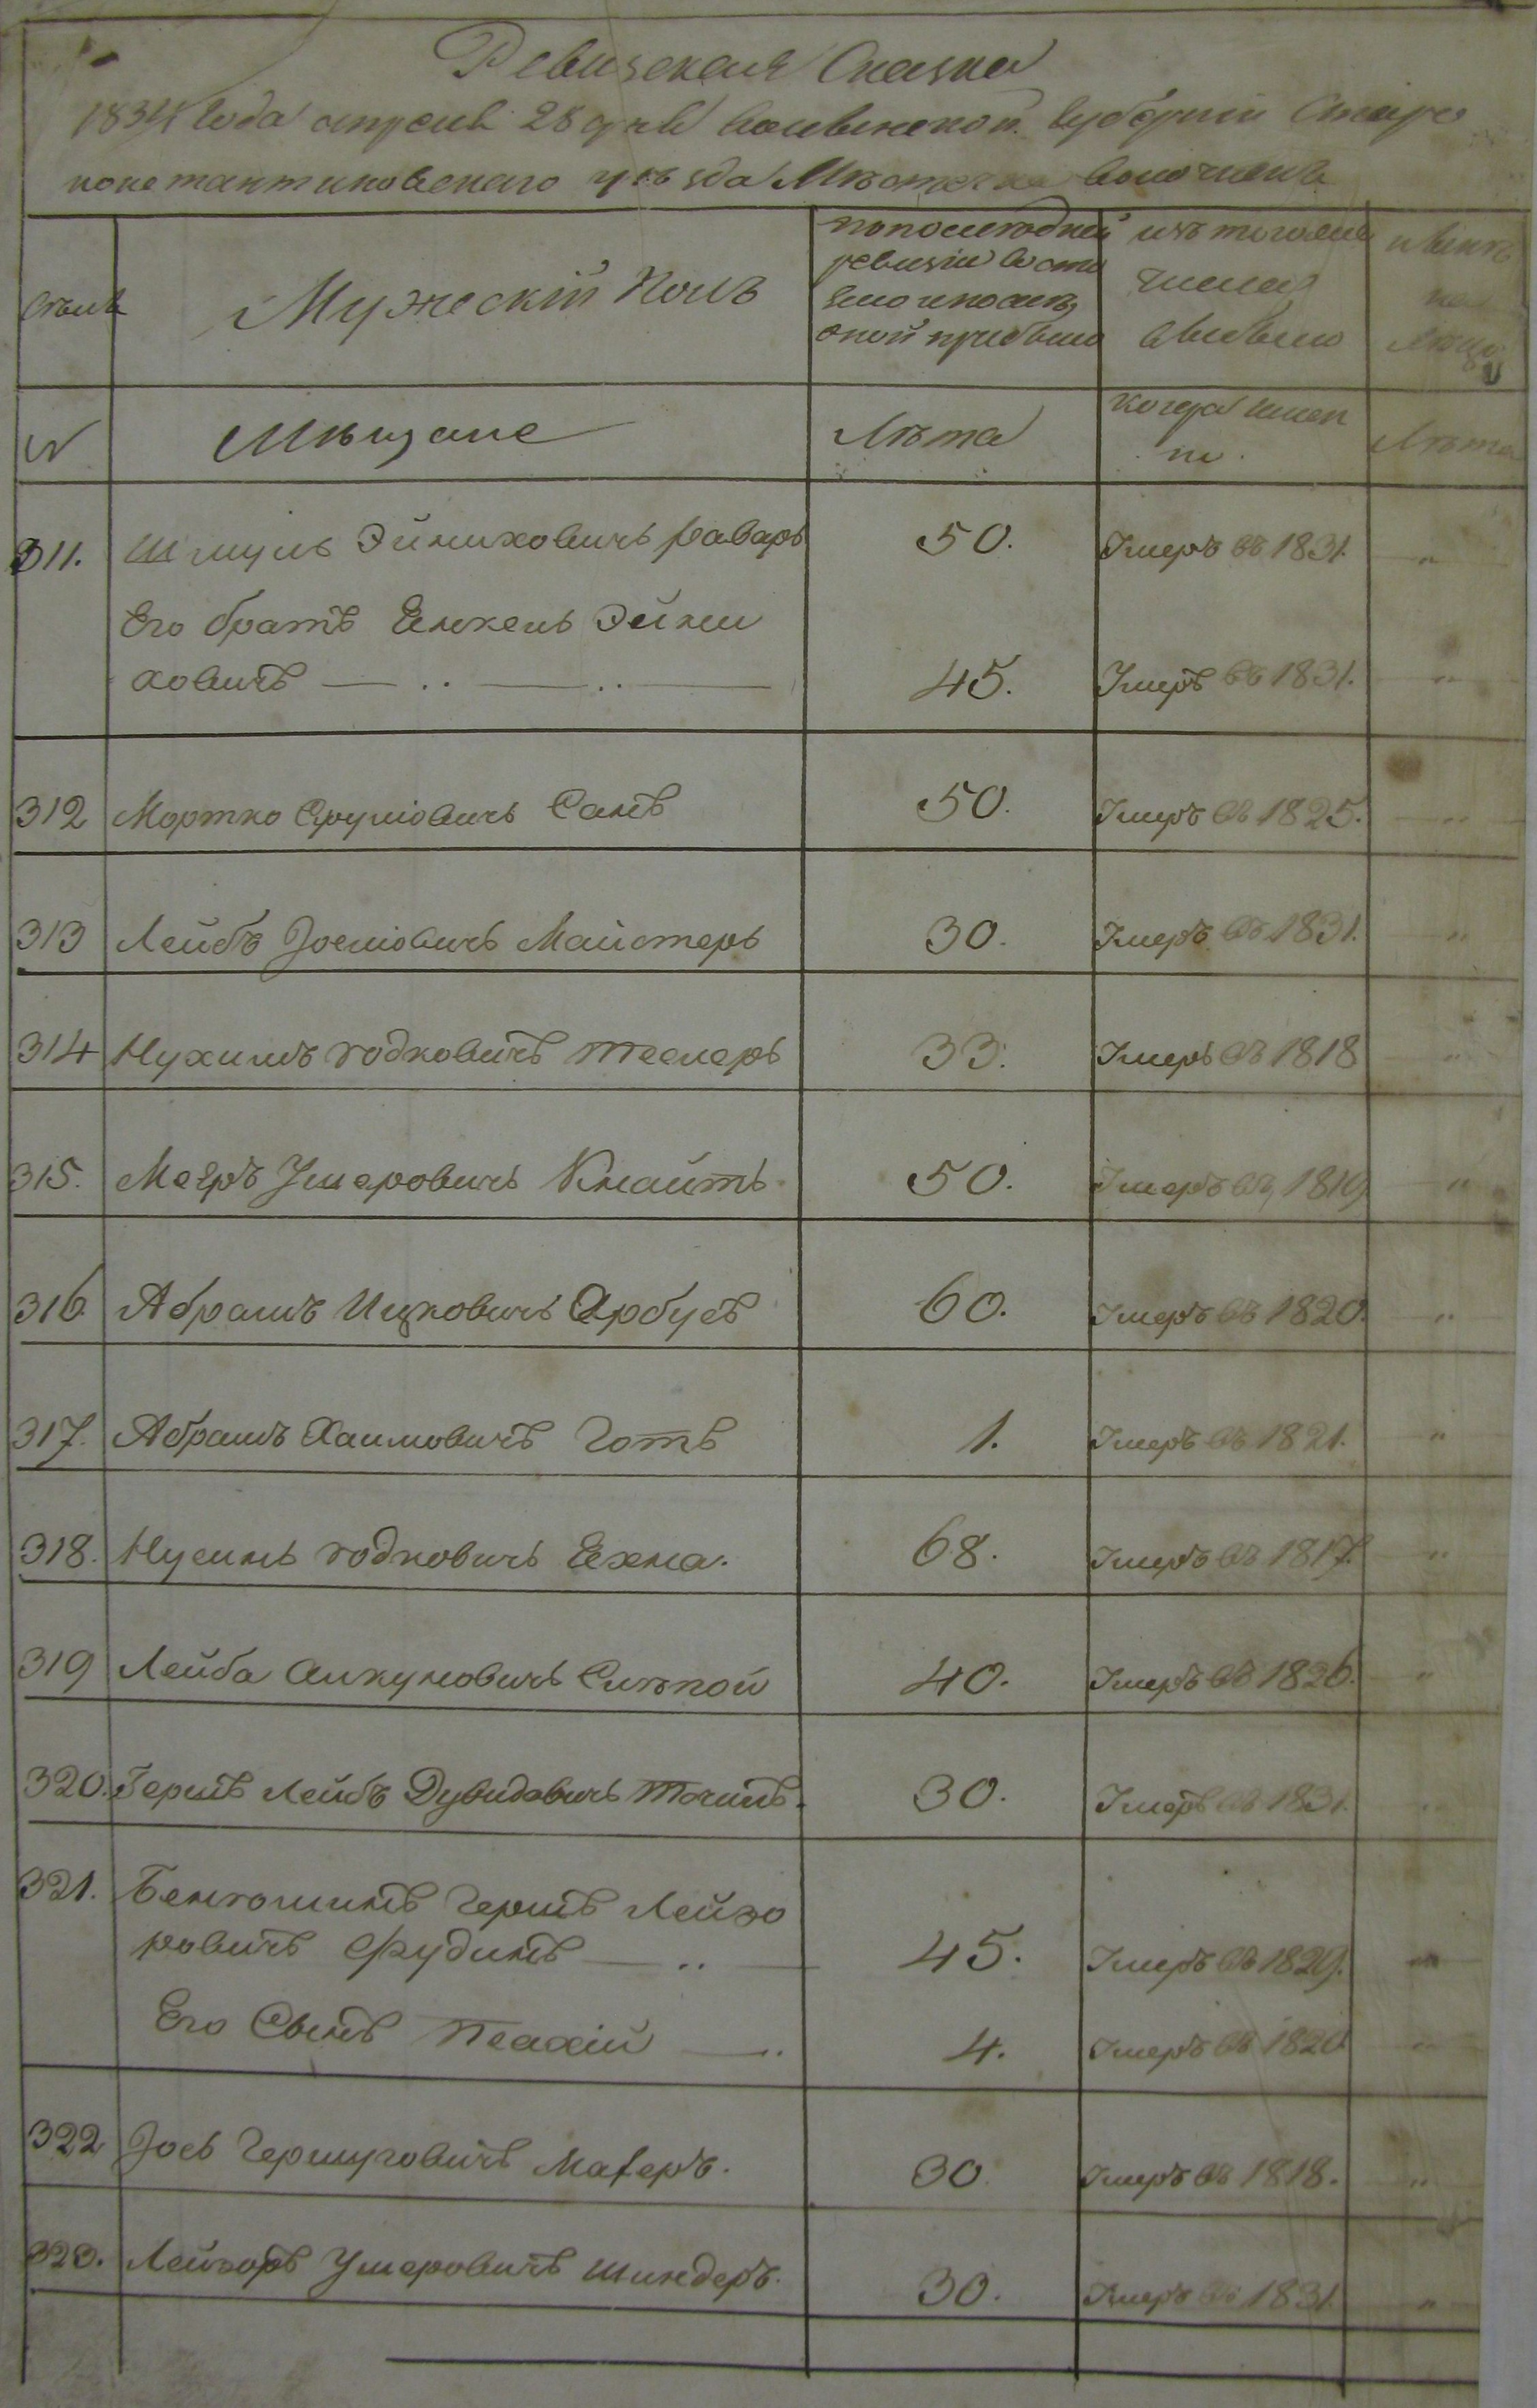 Ревизская Сказка
1834 года апреля 28 дня Волынской Губернии Старо
константиновского уѣзда Мѣстечка Волочиска
Мужескій Полъ
по последней
ревизіи состо
яло и послѣ
оной прибыло
изъ того
числа
выбыло
нынѣ
на
лицо
№
Мѣщане
Лѣта
когда имен
но.
Лѣта
311. Шмуль Эйниховичь раварь 50. Умеръ въ 1831. "
Его братъ Енкель Эйни
ховичъ — .. — .. — 45. Умеръ въ 1831. "
312 Мортко Сруліовичь Санъ 50. Умеръ въ 1825. "
313 Лейбъ Јосіовичъ Майстеръ 30. Умеръ въ 1831. "
314 Нухимъ годковичъ теслеръ 33. Умеръ въ 1818 "
315. Мееръ Ушеровичь Кнайтъ 50. Умеръ въ 1819 "
316. Абрамъ Ицковичь Арбузъ 60. Умеръ въ 1820. "
317. Абрамъ Хаимовичъ Готъ 1. Умеръ въ 1821. "
318. Нусинь годковичь Ехна. 68. Умеръ въ 1817. "
319 Лейба Анкуновичь Слѣпой 40. Умеръ въ 1826. "
320. Гершъ Лейбъ Дувидовичь Точинъ. 30. Умеръ въ 1831. "
321. Бенюминъ Гершъ Лейзо
ровичъ Фудимъ — .. — 45. Умеръ въ 1829. "
Его Сынъ Песахій — .. 4. Умеръ въ 1820 "
322 Јось Гершуновичъ Маферъ. 30 Умеръ въ 1818. "
323. Лейзоръ Ушеровичъ Шиндеръ. 30. Умеръ въ 1831. "